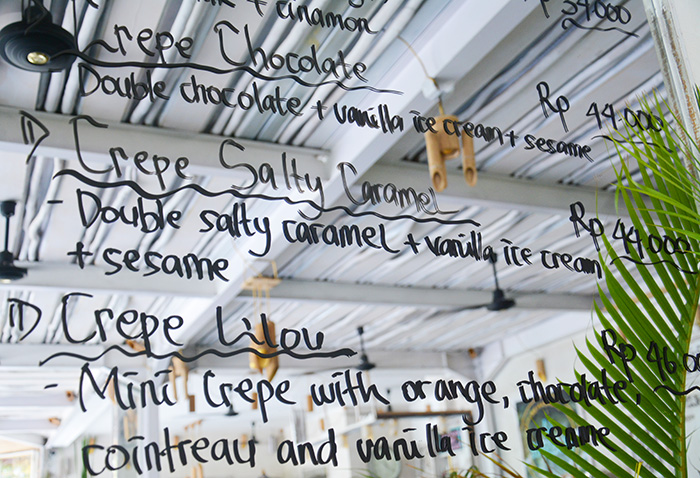 + cinamon
Rp 34.000
Crepe Chocolate
Double chocolate + vanilla ice cream + sesame
Rp 44.000
Crepe Salty Caramel
- Double salty caramel + vanilla ice cream
Rp 44.000
+ sesame
Crepe Lilou
Rp 46.000
- Mini crepe with orange, chocolate,
cointreau and vanilla ice creame